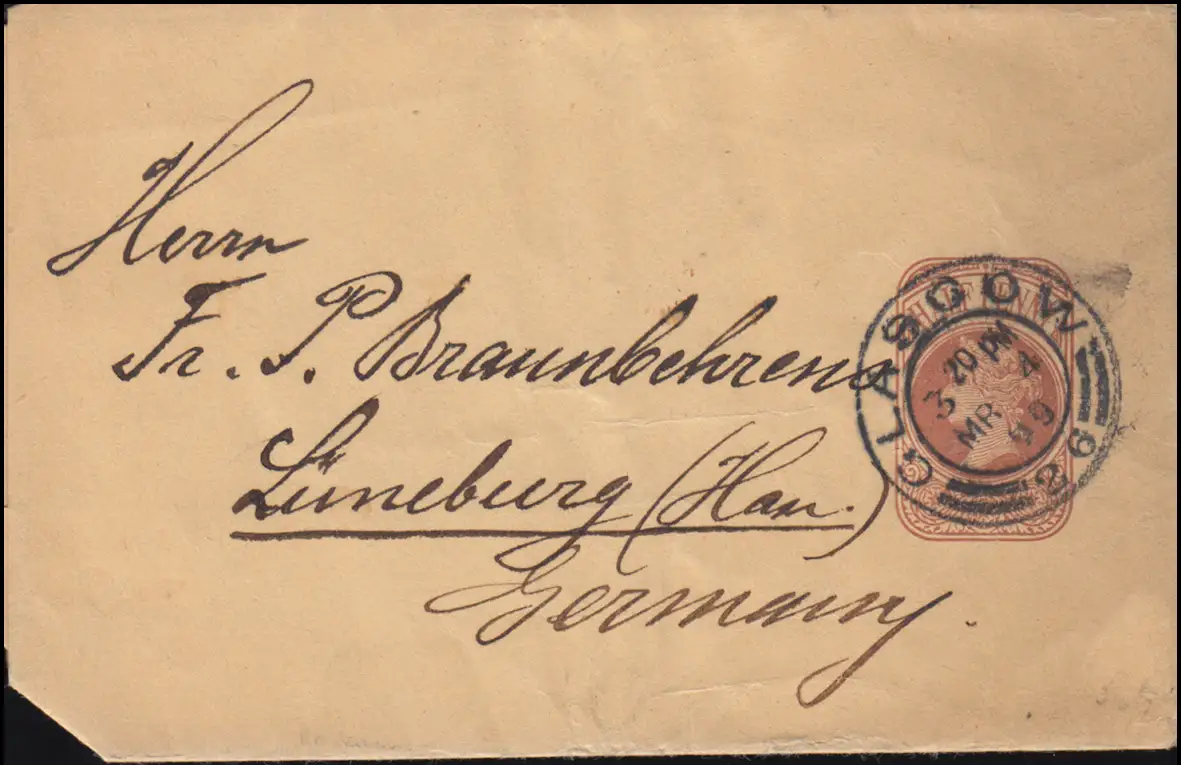 Herrn
Fr. P. Braunbehrens
Lüneburg (Han.)
Germany.
HALF PENNY
GLASGOW
3 20 PM
MR 4
99
26